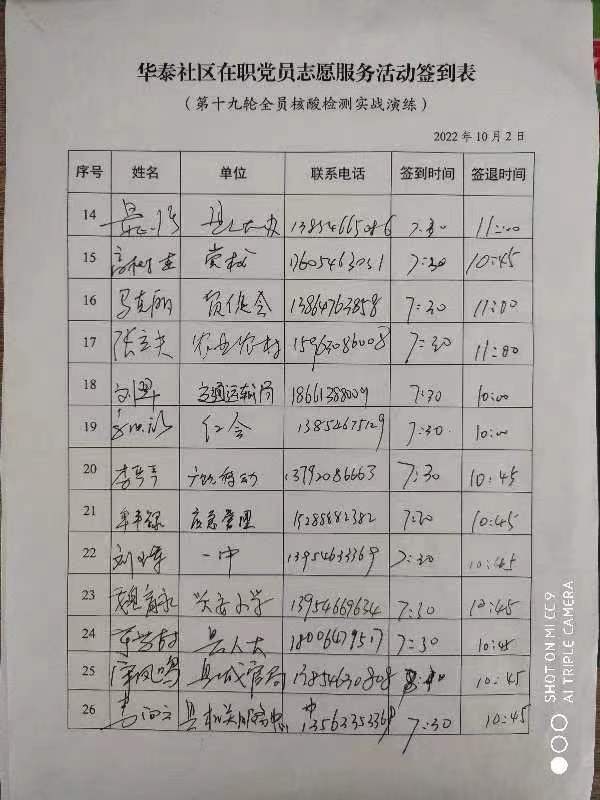 华泰社区在职党员志愿服务活动签到表
（第十九轮全员核酸检测实战演练）
2022 年 10 月 2 日
序号 姓名 单位 联系电话 签到时间 签退时间
14 7:30 11:00
15 党校 17605463031 7:30 10:45
16 马克丽 贸促会 13864763858 7:30 11:00
17 农业农村 7:30 11:00
18 交通运输局 18661388009 7:30 10:00
19 仁会 13854675129 7:30 10:00
20 13792086663 7:30 10:45
21 应急管理 15288882382 7:30 10:45
22 一中 13954633369 7:30 10:45
23 小学 13954669634 7:30 10:45
24 县人大 18006479517 7:30 10:45
25 县城管局 13854630808 10:45
26 县机关服务中心 7:30 10:45
SHOT ON MI CC 9
AI TRIPLE CAMERA